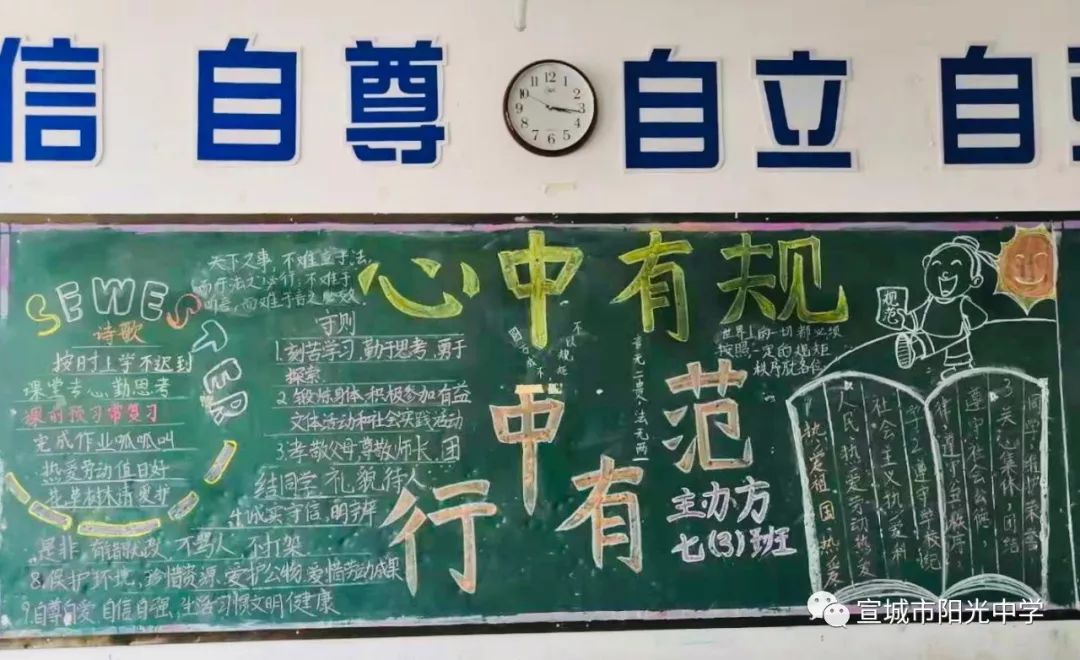 信 自 尊 自 立 自
12 1 2 3 4 5 6 7 8 9 10 11
SEWE
诗歌
按时上学不迟到
课堂专心勤思考
课前预习常复习
完成作业呱呱叫
热爱劳动值日好
花草树木请爱护
天下之事,不难立于法,
而于法之必行;不难于
守则
1.刻苦学习,勤于思考,勇于
探索.
2锻炼身体,积极参加有益
文体活动和社会实践活动
3.孝敬父母尊敬师长,团
结同学,礼貌待人
诚实守信,明辨
是非,不骂人,不打架
8.保护环境,珍惜资源.爱护公物.爱惜劳动成果
9.自尊自爱,自信自强,生活习惯文明健康
心中有规
行中有范
不以规矩
章无二贵,法无两
世界上的一切都必须
按照一定的规矩
秩序就各位
主办方
七(3)班
规范
热爱祖国,热爱
人民,热爱劳动,热爱
社会主义,热爱科
学2.遵守学校
遵守社会公德
3.关心集体,团结
同学,维护荣誉
宣城市阳光中学